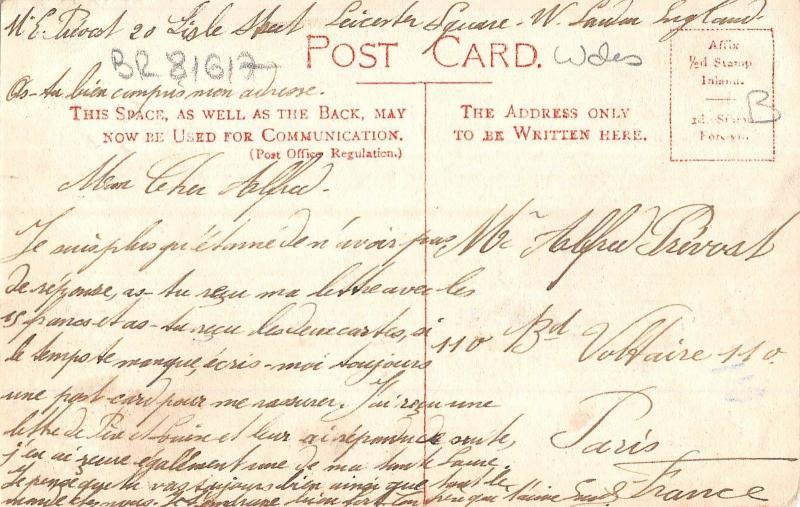 Mr E. Prévost 20 Lisle Street Leicester Square. W. London England.
BR 81617
POST CARD.
Wales
Affix
½d Stamp
Inland.
1d. Stamp
Foreign.
B
As-tu bien compris mon adresse.
THIS SPACE, AS WELL AS THE BACK, MAY
NOW BE USED FOR COMMUNICATION.
(Post Office Regulation.)
THE ADDRESS ONLY
TO BE WRITTEN HERE.
Mon Cher Alfred.
Je suis plus qu'étonné de n'avoir pas
de réponse, as-tu reçu ma lettre avec les
francs et as-tu reçu les deux cartes, si
le temps te manque écris-moi toujours
une post-card pour me rassurer. J'ai reçu une
lettre de et Louise et leur ai répondu de suite,
j'en ai reçue également une de ma tante Laure.
Je pense que tu vas toujours bien ainsi que tout le
monde chez nous. Je t'embrasse bien fort ton frère qui t'aime
Mr Alfred Prévost
110 Bd Voltaire 110.
Paris
France